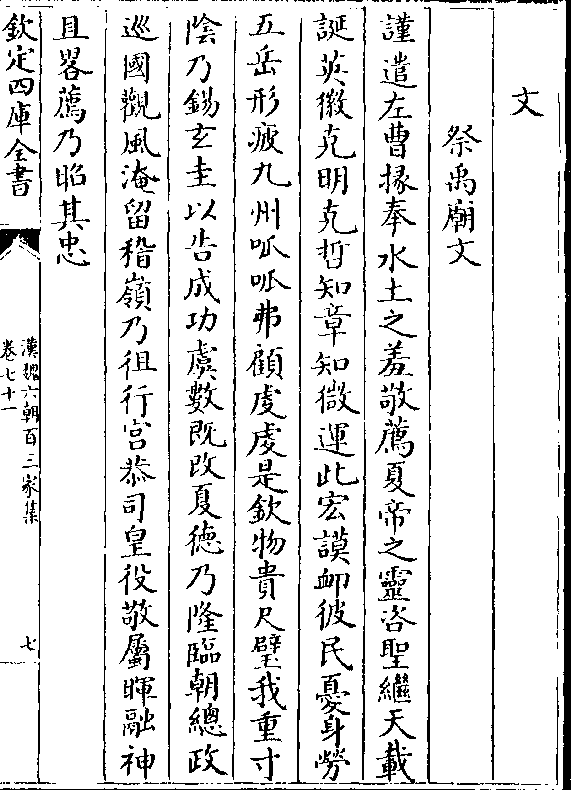 文
祭禹廟文
謹遣左曹掾奉水土之羞敬薦夏帝之靈咨聖繼天載
誕英徽克明克哲知章知微運此宏謨䘏彼民憂身勞
五岳形疲九州呱呱弗顧虔虔是欽物貴尺璧我重寸
陰乃錫玄圭以告成功虞數既改夏德乃隆臨朝總政
巡國觀風淹留稽嶺乃徂行宫恭司皇役敬屬暉融神
且畧薦乃昭其忠
欽定四庫全書
漢魏六朝百三家集
卷七十一
七